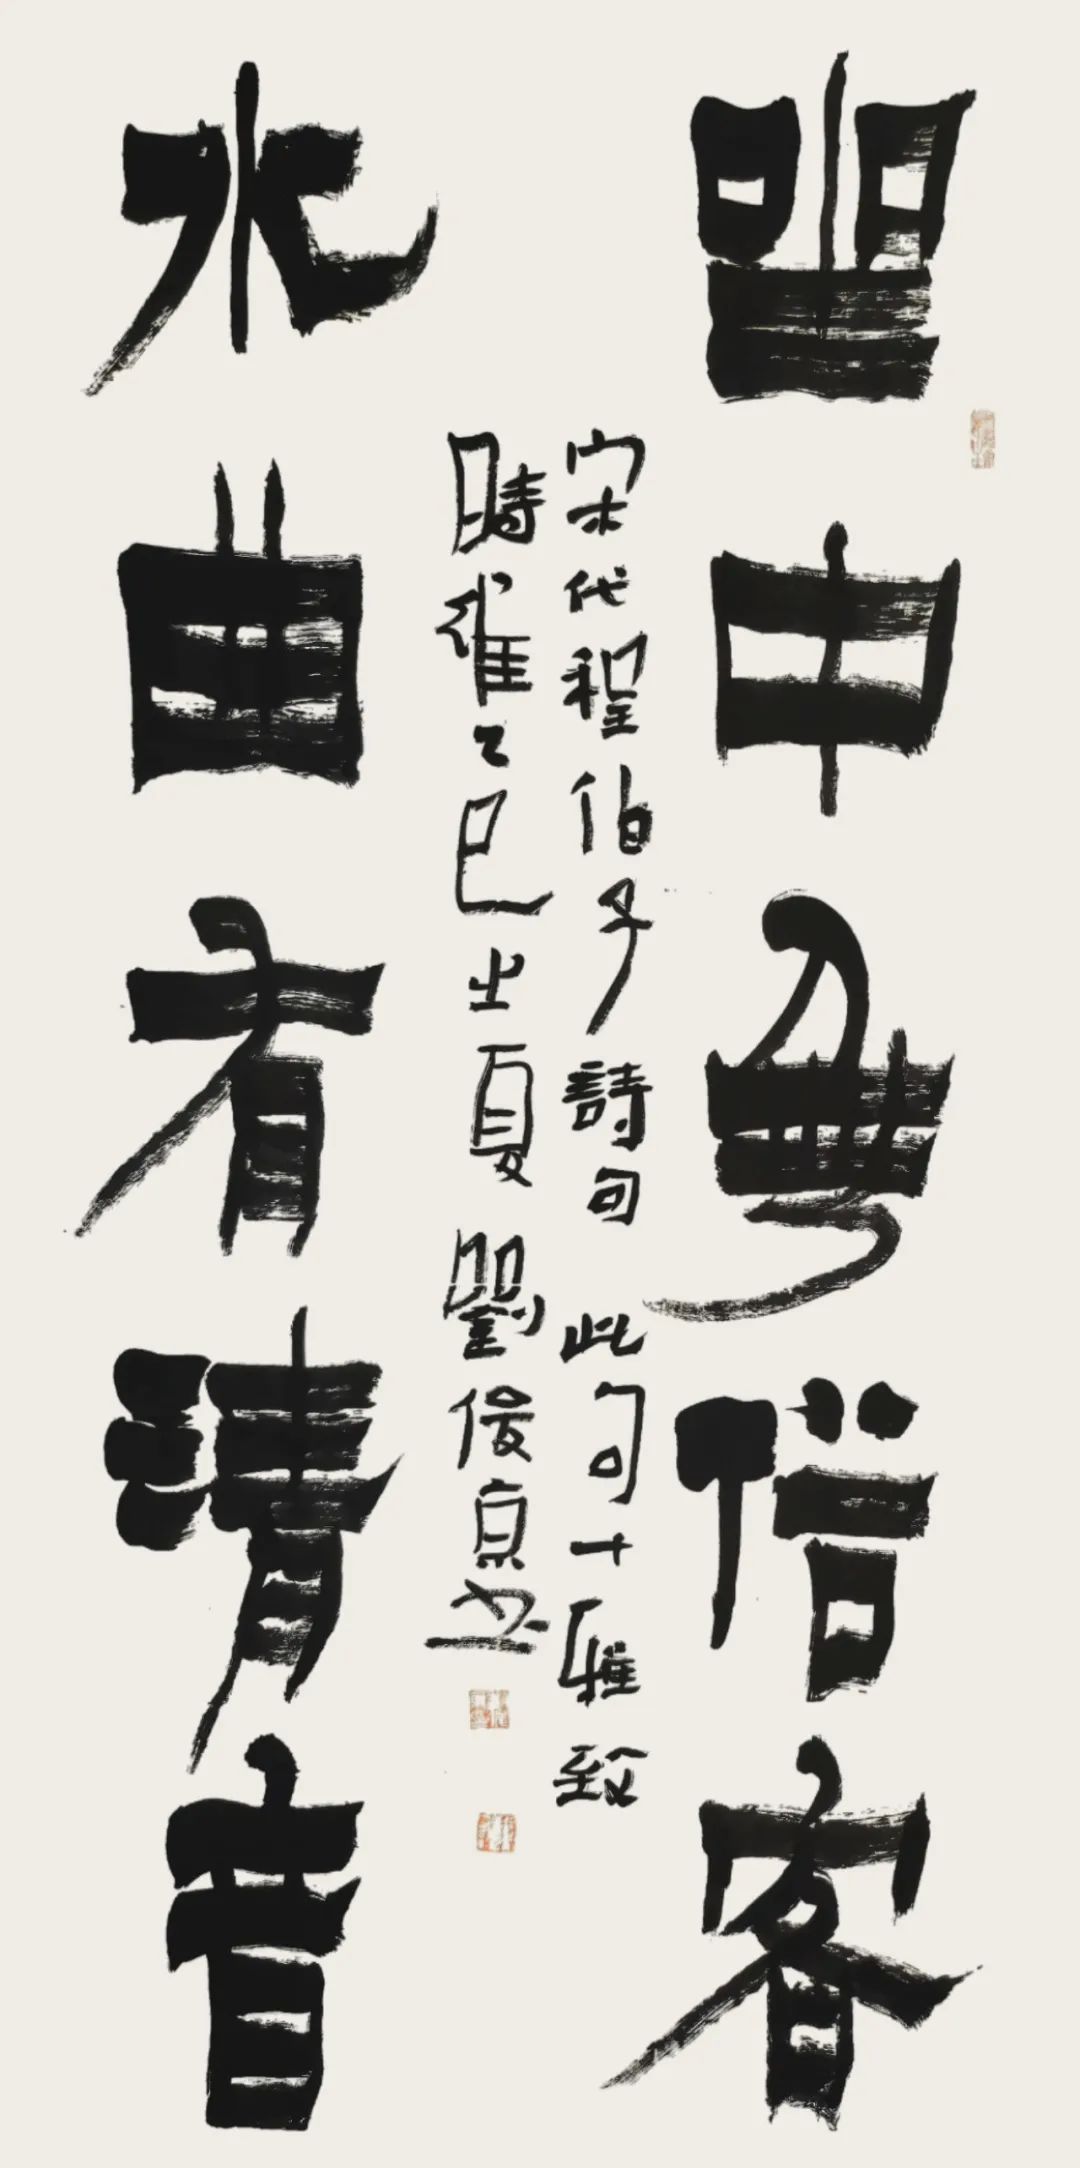 坐中無俗客
水曲有清音
宋代程伯子詩句 此句十雅致
時維乙巳之夏 劉俊京書